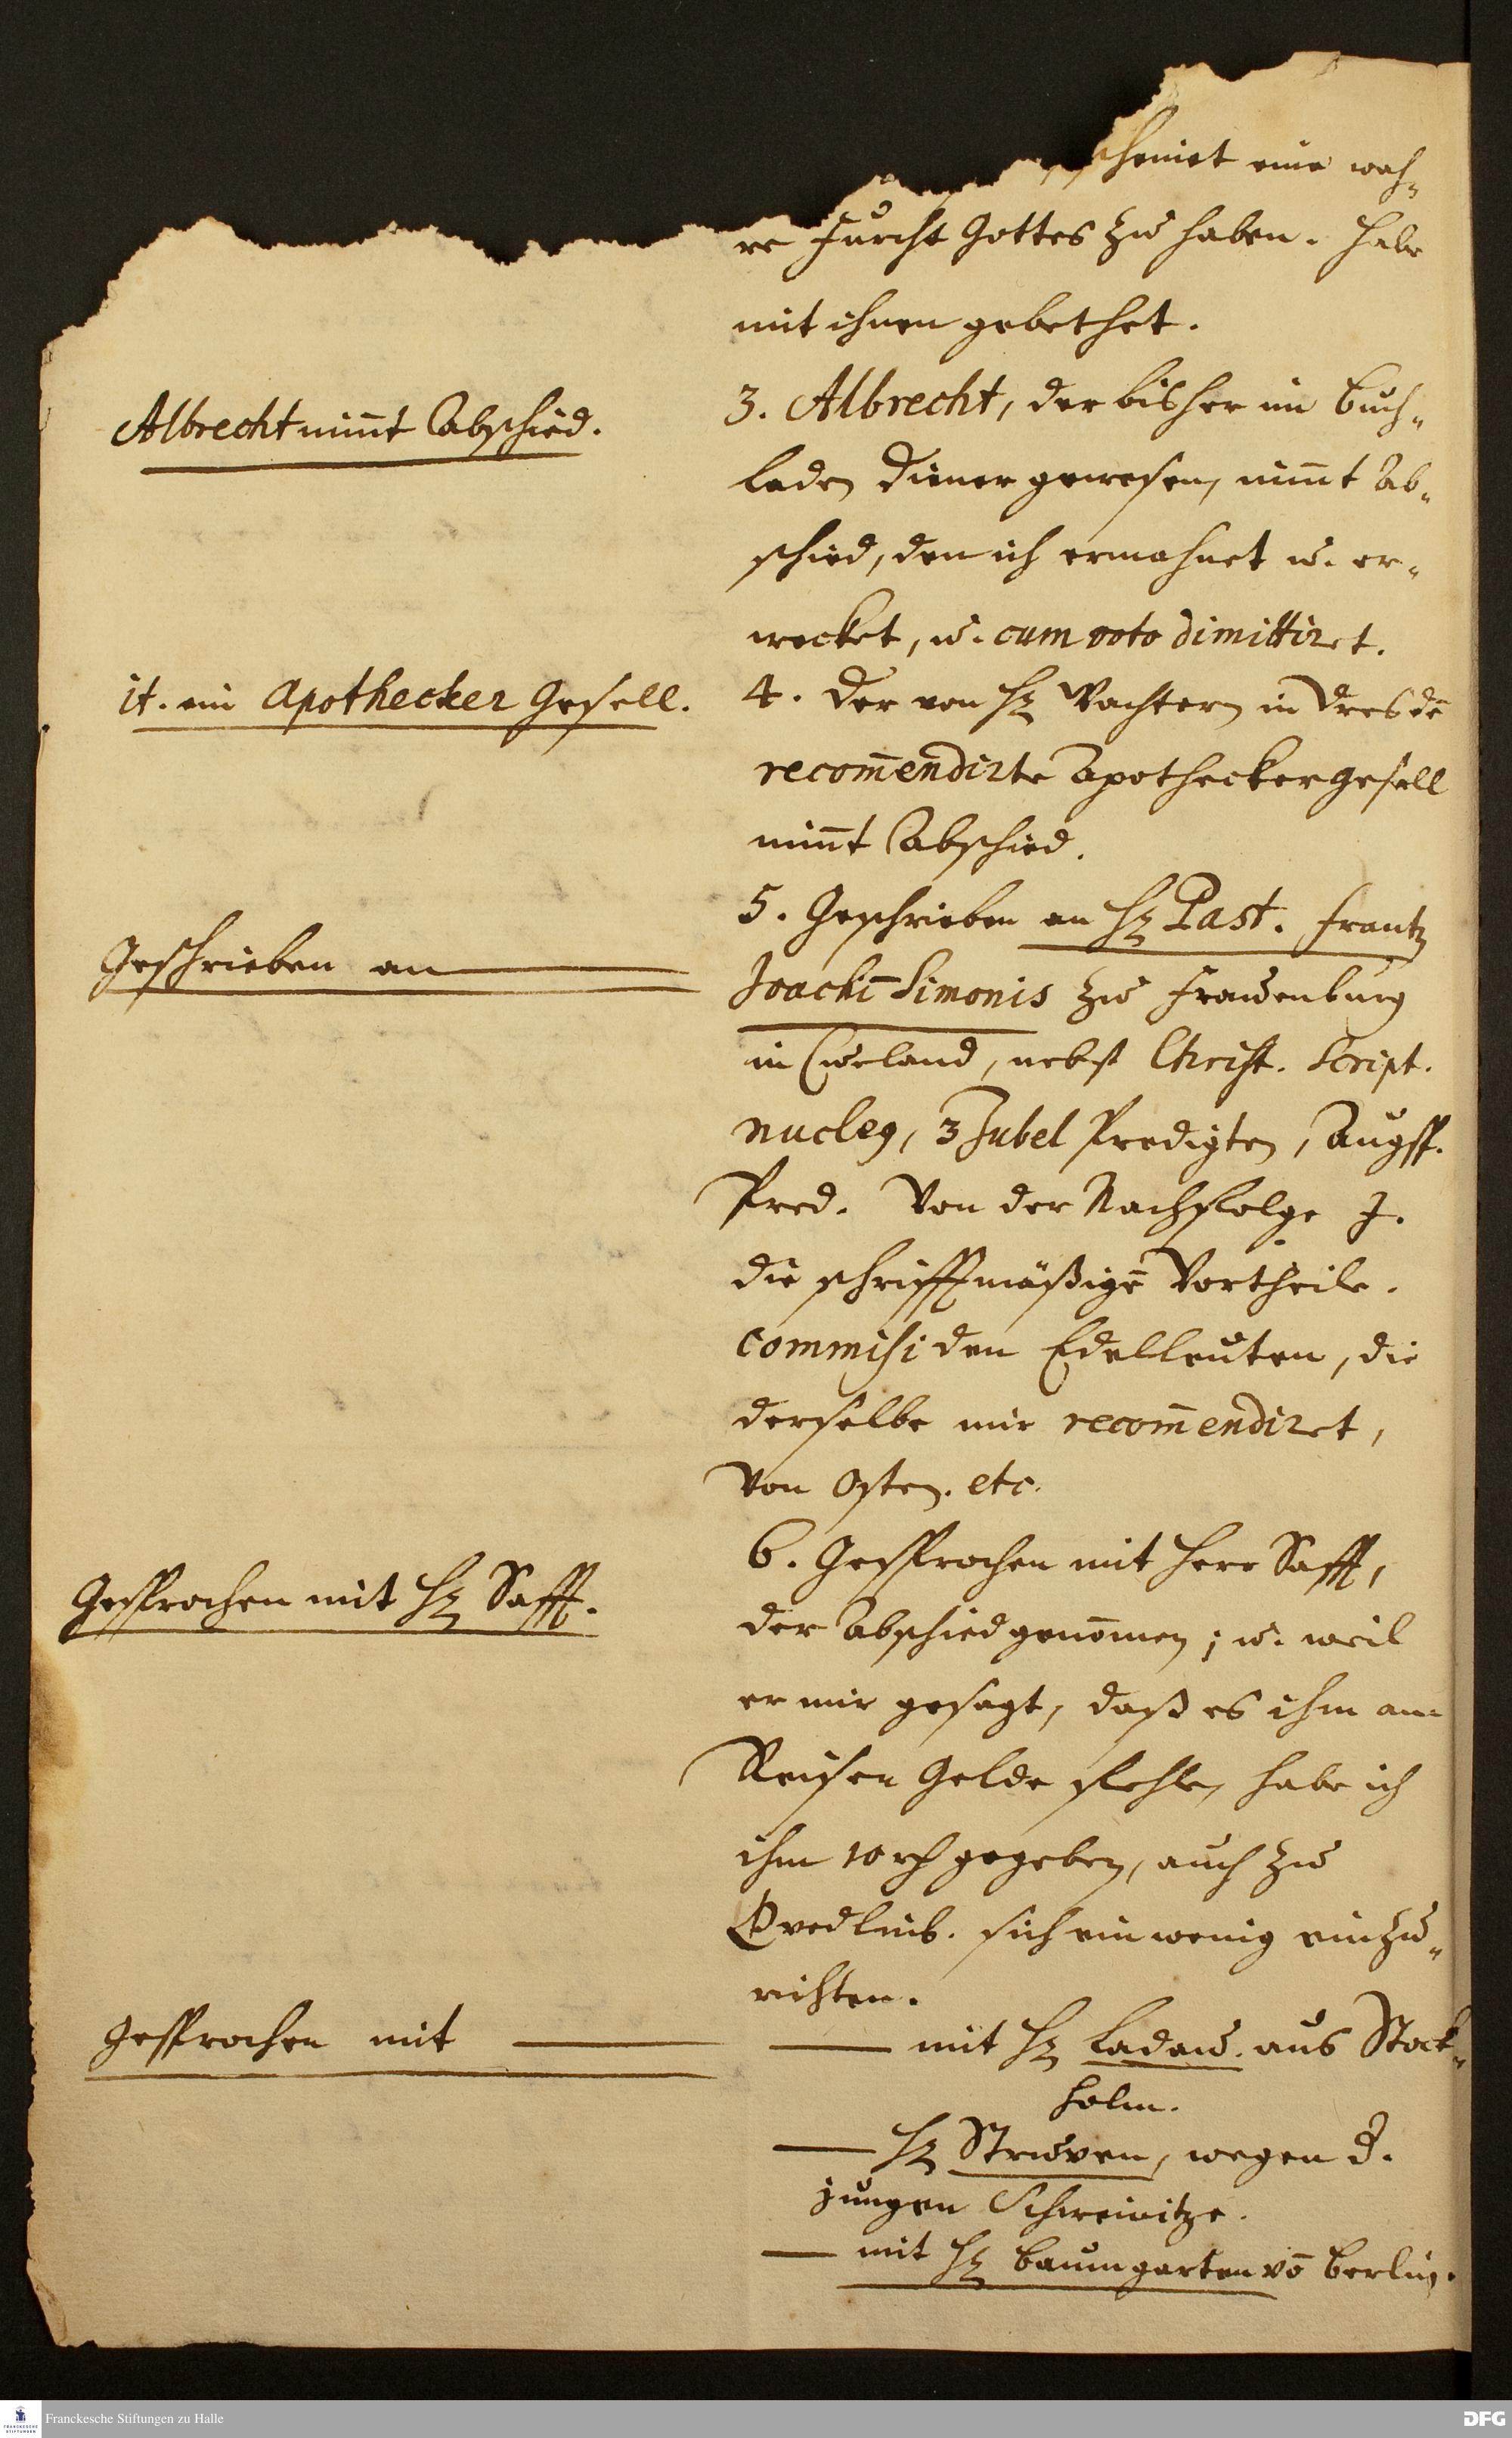 scheinet eine wah-
re Furcht Gottes zu haben. Habe
mit ihnen gebethet.
Albrecht nim̄t Abschied.
3. Albrecht, der bisher im Buch-
laden Diener gewesen, nim̄t Ab-
schied, den ich ermahnet u. er-
wecket, u. cum voto dimittiret.
it. ein Apothecker Gesell.
4. Der von H. Wachtern in Dresdē
recom̄endirte Apotheckergesell
nim̄t Abschied.
Geschrieben an
5. Geschrieben an H. Past. Frantz
Joachī Simonis zu Frauenburg
in Curland, nebst Christ. Script.
nucleo, 3 Jubel Predigten, Augsp.
Pred. Von der Nachfolge J.
die schrifftmäßigē Vortheile.
commisi den Edelleuten, die
derselbe mir recom̄endiret,
von Osten. etc.
Gesprochen mit H. Safft.
6. Gesprochen mit Herr Safft,
der Abschied genom̄en; u. weil
er mir gesagt, daß es ihm an
Reisen Gelde fehle, habe ich
ihm 10 rth gegeben, auch zu
Qvedlinb. sich ein wenig einzu-
richten.
Gesprochen mit
mit H. Ladau. aus Stock-
holm.
H. Struven, wegen d.
jungen Schweinitze.
mit H. Baumgarten vō Berlin.
Franckesche Stiftungen zu Halle
DFG